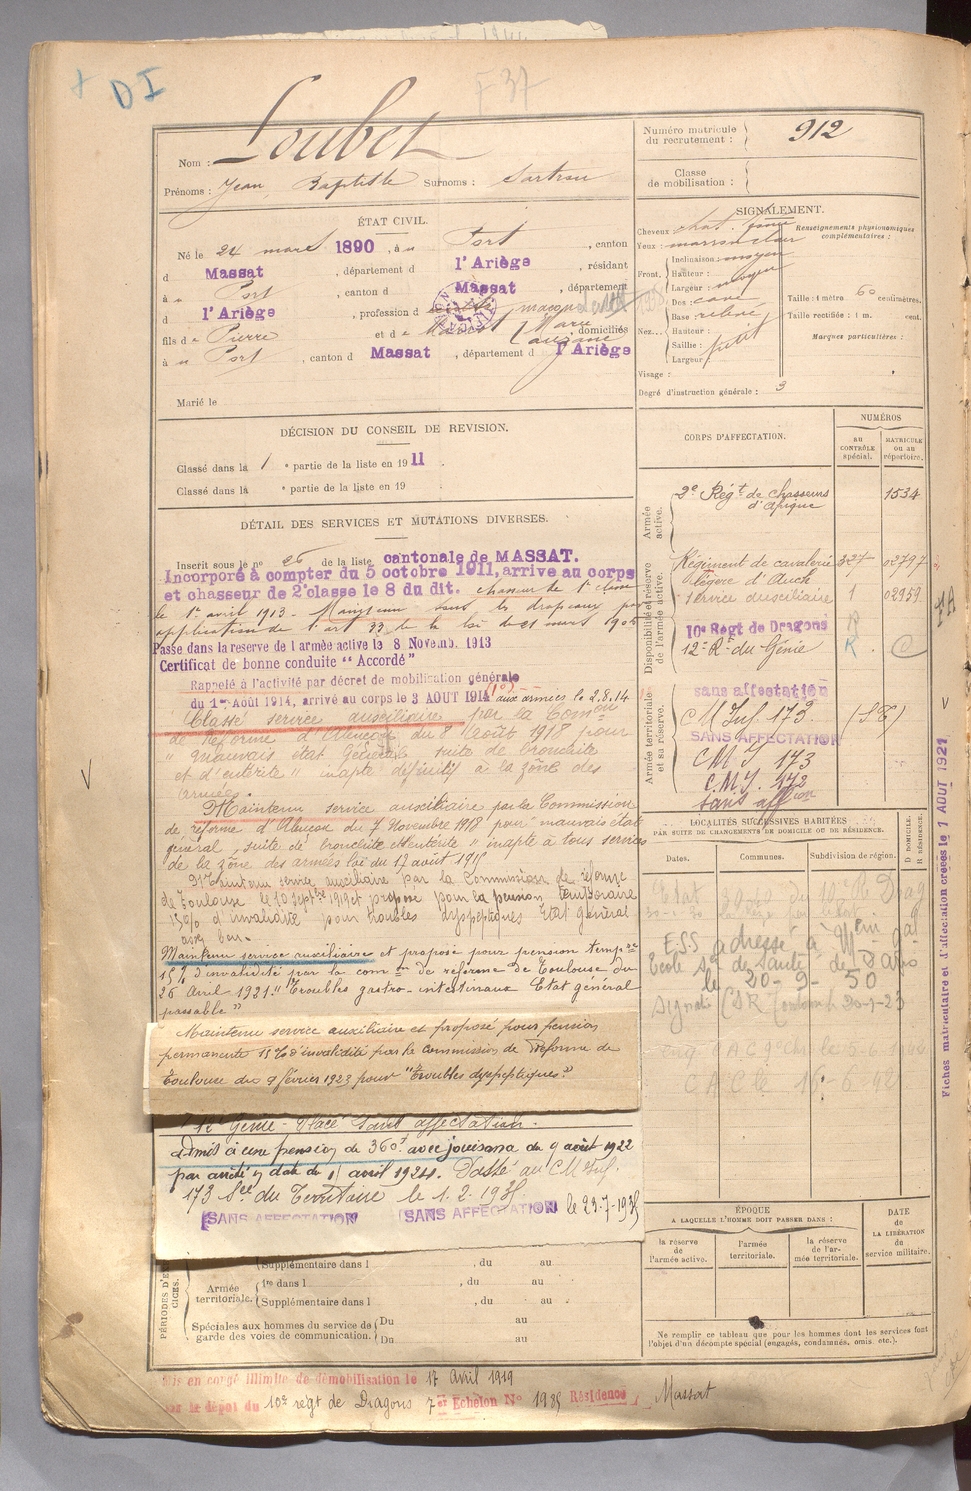 DI
F 37
Nom : Loubet
Prénoms : Jean Baptiste Surnoms : Sartrou
Numéro matricule du recrutement : 912
Classe de mobilisation :
ÉTAT CIVIL.
Né le 24 mars 1890, à Port, canton
d Massat, département d l'Ariège, résidant
à Port, canton d Massat, département
d l'Ariège, profession d maçon
fils de Pierre et de Marie domiciliés
à Port, canton d Massat, département d l'Ariège
Marié le
SIGNALEMENT.
Cheveux chat. foncé
Yeux : marron clair
Front. Inclinaison : moyen
Hauteur :
Largeur : moyen
Nez... Dos : cavé
Base : relevé
Hauteur :
Saillie : petit
Largeur :
Visage :
Renseignements physionomiques complémentaires :
Taille : 1 mètre 60 centimètres.
Taille rectifiée : 1 m. cent.
Marques particulières :
Degré d'instruction générale : 3
DÉCISION DU CONSEIL DE REVISION.
Classé dans la 1e partie de la liste en 1911
Classé dans la e partie de la liste en 19
DÉTAIL DES SERVICES ET MUTATIONS DIVERSES.
Inscrit sous le n° 26 de la liste cantonale de MASSAT.
Incorporé à compter du 5 octobre 1911, arrive au corps
et chasseur de 2e classe le 8 du dit. chasseur de 1e classe
le 1er avril 1913. Maintenu sous les drapeaux par
application de l'art 33 de la loi du 21 mars 1905
Passe dans la reserve de l armée active le 8 Novemb. 1913
Certificat de bonne conduite "Accordé"
Rappelé à l'activité par décret de mobilisation générale
du 1er Août 1914, arrivé au corps le 3 AOUT 1914 aux armées le 2.8.14
Classé service auxiliaire par la Comon
de Réforme d'Alençon du 8 Août 1918 pour
"mauvais état Général suite de bronchite
et d'entérite" inapte définitif à la zône des
armées.
Maintenu service auxiliaire par la Commission
de réforme d'Alençon du 7 Novembre 1918 pour "mauvais état
général, suite de bronchite et entérite" inapte à tous services
de la zône des armées loi du 17 août 1915
Maintenu service auxiliaire par la Commission de réforme
de Toulouse le 10 Septbre 1919 et proposé pour la pension temporaire
15% d'invalidité pour troubles dyspeptiques Etat général
assez bon.
Maintenu service auxiliaire et proposé pour pension tempre
15% d'invalidité par la comon de reforme de Toulouse du
26 Avril 1921. "Troubles gastro-intestinaux Etat général
passable"
Maintenu service auxiliaire et proposé pour pension
permanente 15% d'invalidité par la Commission de Réforme de
Toulouse du 9 février 1923 pour "Troubles dyspeptiques."
Génie - Placé Sans affectation.
Admis à une pension de 360f avec jouissance du 9 août 1922
par arrêté en date du 15 avril 1924. Passé au C M Inf.
173 Sce du Territoire le 1.2.1935
SANS AFFECTATION SANS AFFECTATION le 23-7-1935
CORPS D'AFFECTATION.
NUMÉROS
AU CONTRÔLE spécial.
MATRICULE OU AU répertoire.
Armée active.
2e Régt de Chasseurs d'Afrique 1534
Disponibilité et réserve de l'armée active.
Régiment de cavalerie légère d'Auch 327 02797
Service auxiliaire 1 02959
10e Régt de Dragons
12e Rt du Génie
Armée territoriale et sa réserve.
sans affectation
C M Inf. 173
SANS AFFECTATION
C M I 173
C.M.I. 172
sans affion
LOCALITÉS SUCCESSIVES HABITÉES
PAR SUITE DE CHANGEMENTS DE DOMICILE OU DE RÉSIDENCE.
Dates. Communes. Subdivision de région. D DOMICILE. R RÉSIDENCE.
E.S.S adressé à
Ecole de Santé de Paris
le 20-9-50
C A C le 16-6-42
ÉPOQUE
A LAQUELLE L'HOMME DOIT PASSER DANS :
la réserve de l'armée active.
l'armée territoriale.
la réserve de l'armée territoriale.
DATE de LA LIBÉRATION du service militaire.
Ne remplir ce tableau que pour les hommes dont les services font
l'objet d'un décompte spécial (engagés, condamnés, omis, etc.).
Supplémentaire dans l , du au
Armée territoriale. 1re dans l , du au
Supplémentaire dans l , du au
Spéciales aux hommes du service de garde des voies de communication. Du au
Du au
Mis en congé illimité de démobilisation le 17 Avril 1919
le dépôt du 10e régt de Dragons 7e Echelon N° 1935 Résidence Massat
Fiches matriculaire et d'affectation créées le 1 AOUT 1921